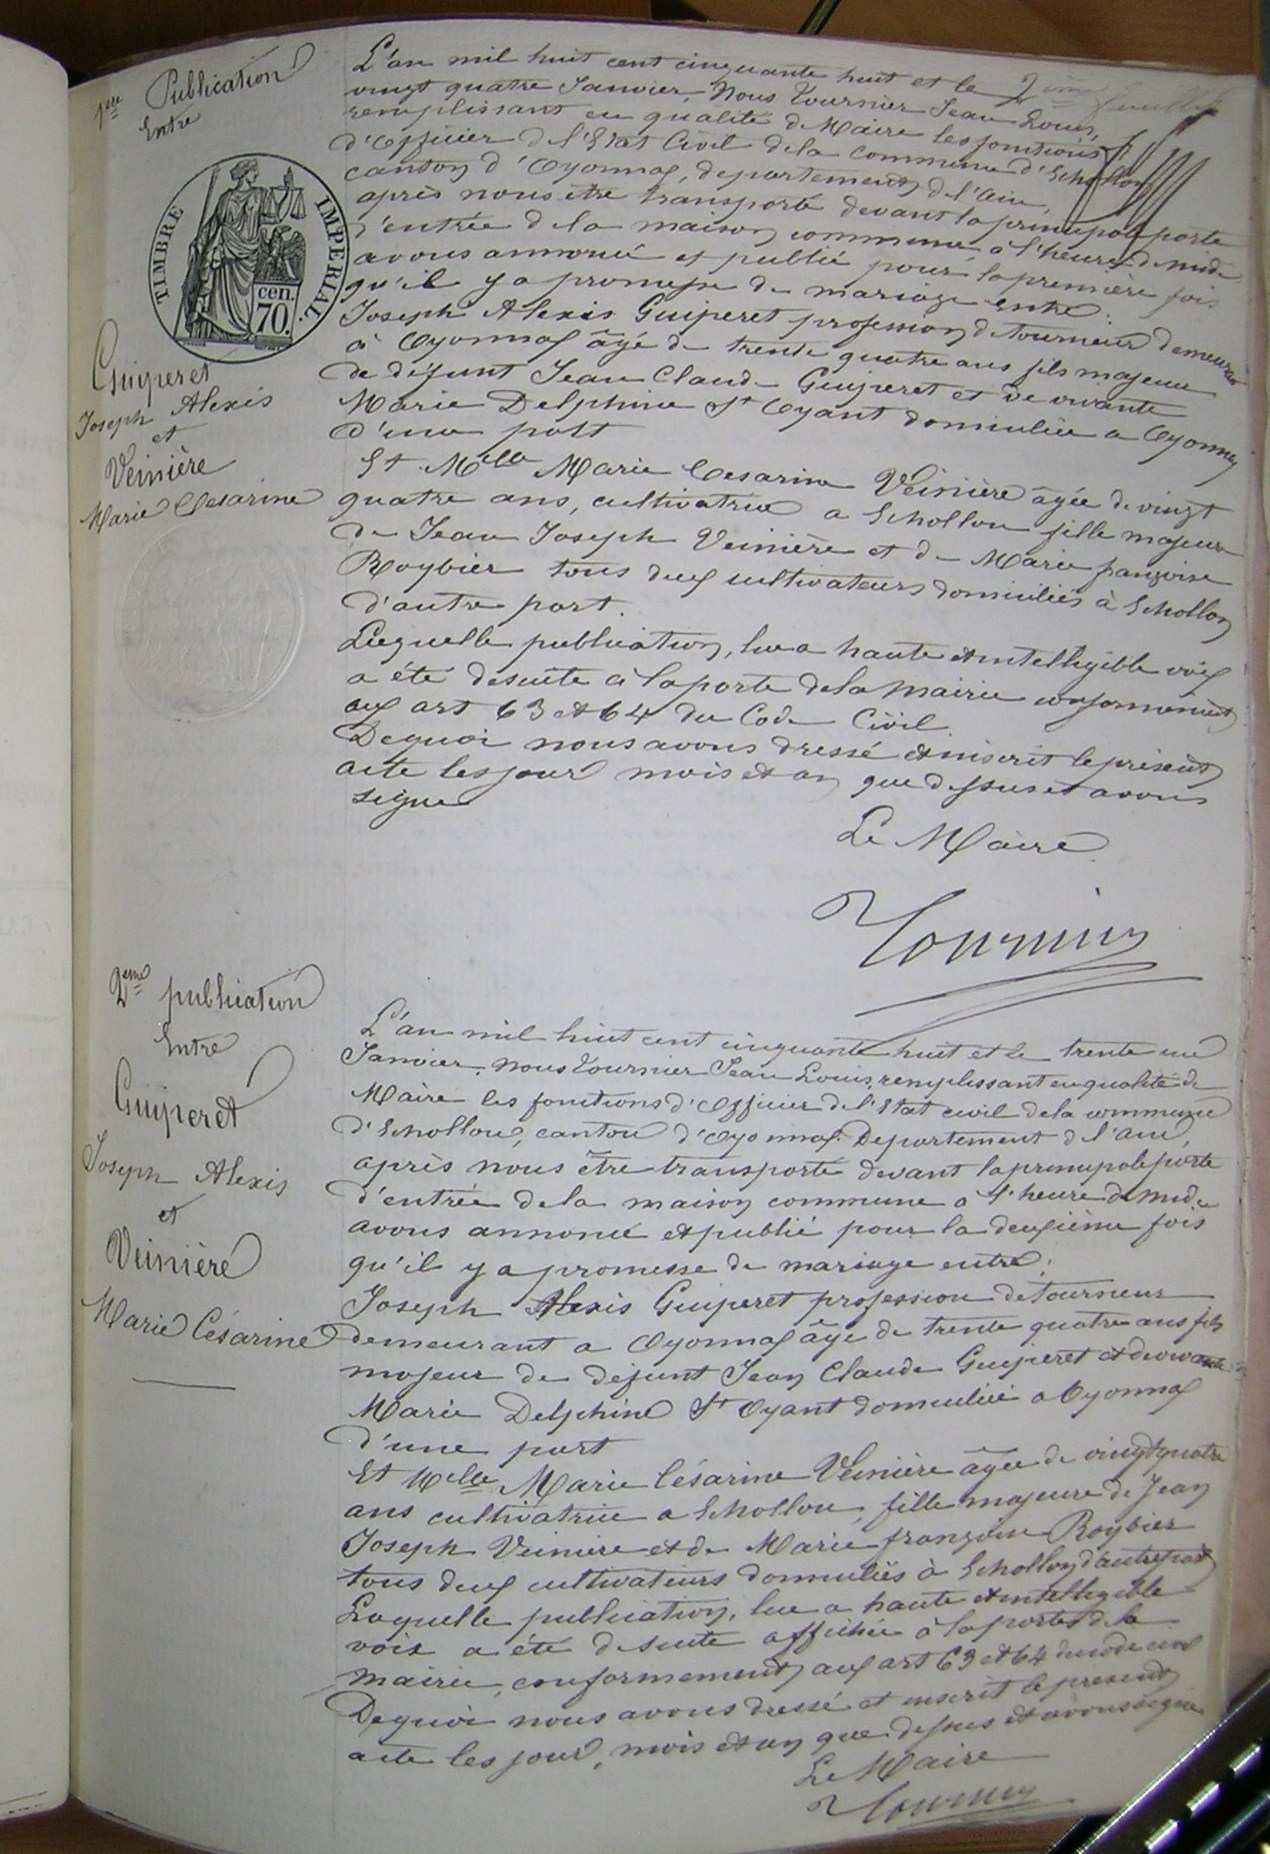 1ère Publication
Entre
TIMBRE IMPERIAL.
cen.
70.
Guiperet
Joseph Alexis
et
Veinière
Marie Cesarine
2ème feuillet
L'an mil huit cent cinquante huit et le
vingt quatre Janvier, Nous Tournier Jean Louis,
remplissant en qualité de Maire les fonctions
d'Officier de l'Etat Civil de la commune d'Echallon
canton d'Oyonnax, departement de l'Ain,
après nous être transporté devant la principale porte
d'entrée de la maison commune, à l'heure de midi
avons annoncé et publié pour la première fois
qu'il y a promesse de mariage entre:
Joseph Alexis Guiperet profession de tourneur demeurant
à Oyonnax âgé de trente quatre ans fils majeur
de défunt Jean Claude Guiperet et de vivante
Marie Delphine St Oyant domiciliée a Oyonnax
d'une part
Et Mlle Marie Cesarine Veinière âgée de vingt
quatre ans, cultivatrice a Echollon fille majeure
de Jean Joseph Veinière et de Marie françoise
Roybier tous deux cultivateurs domiciliés à Echollon
d'autre part.
Laquelle publication, lue a haute et intelligible voix
a été desuite à la porte de la Mairie conformement
aux art 63 et 64 du Code Civil.
Dequoi nous avons dressé et inscrit le présent
acte les jour mois et an que dessus et avons
signé
Le Maire
Tournier
2ème publication
Entre
Guiperet
Joseph Alexis
et
Veinière
Marie Césarine
L'an mil huit cent cinquante huit et le trente un
Janvier, nous Tournier Jean Louis, remplissant en qualité de
Maire les fonctions d'Officier de l'Etat civil de la commune
d'Echollon, canton d'Oyonnax, Departement de l'Ain,
après nous être transporté devant la principale porte
d'entrée de la maison commune à l'heure de midi
avons annoncé et publié pour la deuxième fois
qu'il y a promesse de mariage entre:
Joseph Alexis Guiperet profession de Tourneur
demeurant a Oyonnax âgé de trente quatre ans fils
majeur de défunt Jean Claude Guiperet et de vivante
Marie Delphine St Oyant domiciliée a Oyonnax
d'une part
Et Mlle Marie Césarine Veinière âgée de vingt quatre
ans cultivatrice a Echollon, fille majeure de Jean
Joseph Veiniere et de Marie françoise Roybier
tous deux cultivateurs domiciliés à Echollon d'autre part
Laquelle publication, lue a haute et intelligible
voix a été desuite affichée à la porte de la
mairie, conformement aux art 63 et 64 du code civil
Dequoi nous avons dressé et inscrit le present
acte les jour, mois et an que dessus et avons signé
Le Maire
Tournier